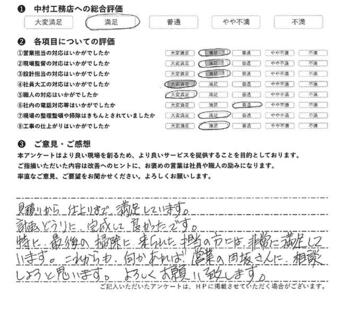 ❶ 中村工務店への総合評価
大変満足 満足 普通 やや不満 不満
❷ 各項目についての評価
①営業担当の対応はいかがでしたか 大変満足 満足 普通 やや不満 不満
②現場監督の対応はいかがでしたか 大変満足 満足 普通 やや不満 不満
③設計担当の対応はいかがでしたか 大変満足 満足 普通 やや不満 不満
④社員大工の対応はいかがでしたか 大変満足 満足 普通 やや不満 不満
⑤職人の対応はいかがでしたか 大変満足 満足 普通 やや不満 不満
⑥社内の電話対応等はいかがでしたか 大変満足 満足 普通 やや不満 不満
⑦現場の整理整頓や掃除はきちんとされていましたか 大変満足 満足 普通 やや不満 不満
⑧工事の仕上がりはいかがでしたか 大変満足 満足 普通 やや不満 不満
❸ ご意見・ご感想
本アンケートはより良い現場を創るため、より良いサービスを提供することを目的としております。
ご指摘いただいた内容は改善へのヒントに、お褒めの言葉は社員や職人の励みになります。
率直なご意見、ご要望をお聞かせください。よろしくお願いします。
見積りから 仕上りまで 満足しています。
計画どうりに、完成して 良かったです。
特に、最後の 掃除に 来られた 担当の方には、非常に満足して
います。これからも、何かあれば、営業の 田坂さんに、相談
しようと思います。よろしくお願い致します。
ご記入いただいたアンケートは、HPに掲載させていただく場合がございます。